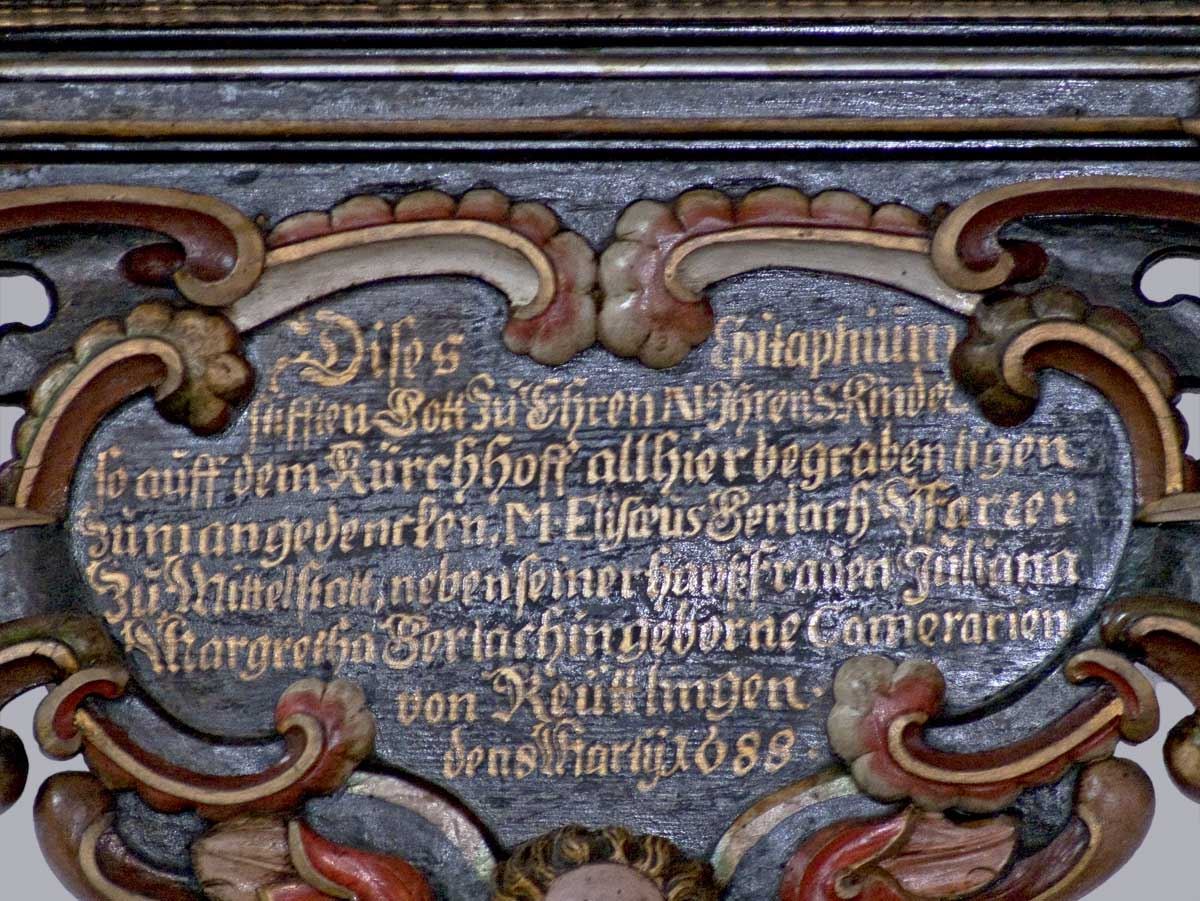 Dises Epitaphiüm
stifften Gott Zü Ehren Ihren Kinder
so aüff dem Kürchhoff allhier begraben ligen
Zümangedencken, M. Elisæus Gerlach Pfarrer
Zü Mittelstatt, neben seiner haüßfraüen Jüliana
Margretha Gerlachin geborne Camerarien
von Reüttlingen.
den 8 Martij 1688.